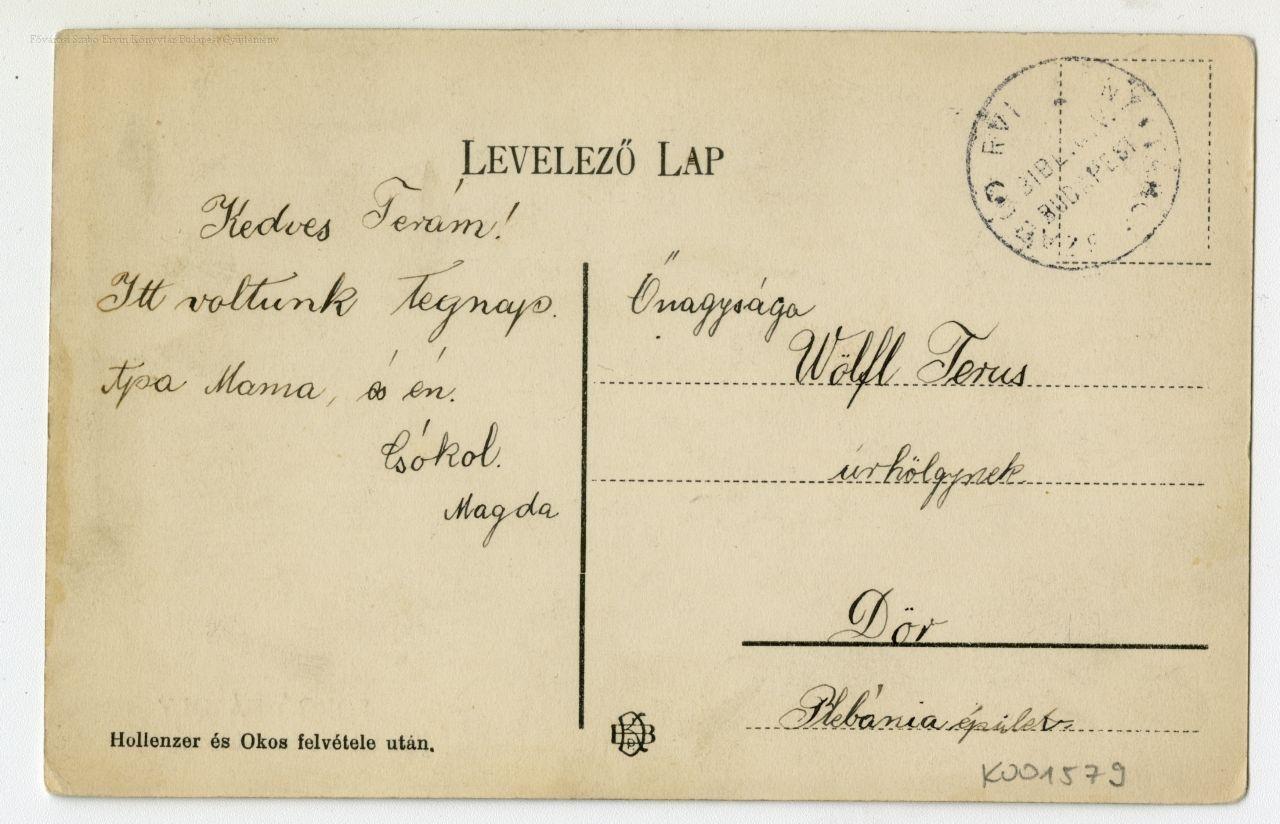 Fővárosi Szabó Ervin Könyvtár Budapest Gyűjtemény
LEVELEZŐ LAP
Kedves Terám!
Itt voltunk tegnap.
Apa Mama, és én.
Csókol.
Magda
Őnagysága
Wölfl Terus
úrhölgynek
Dör
Plebánia épület.
BUDAPEST
Hollenzer és Okos felvétele után.
K001579